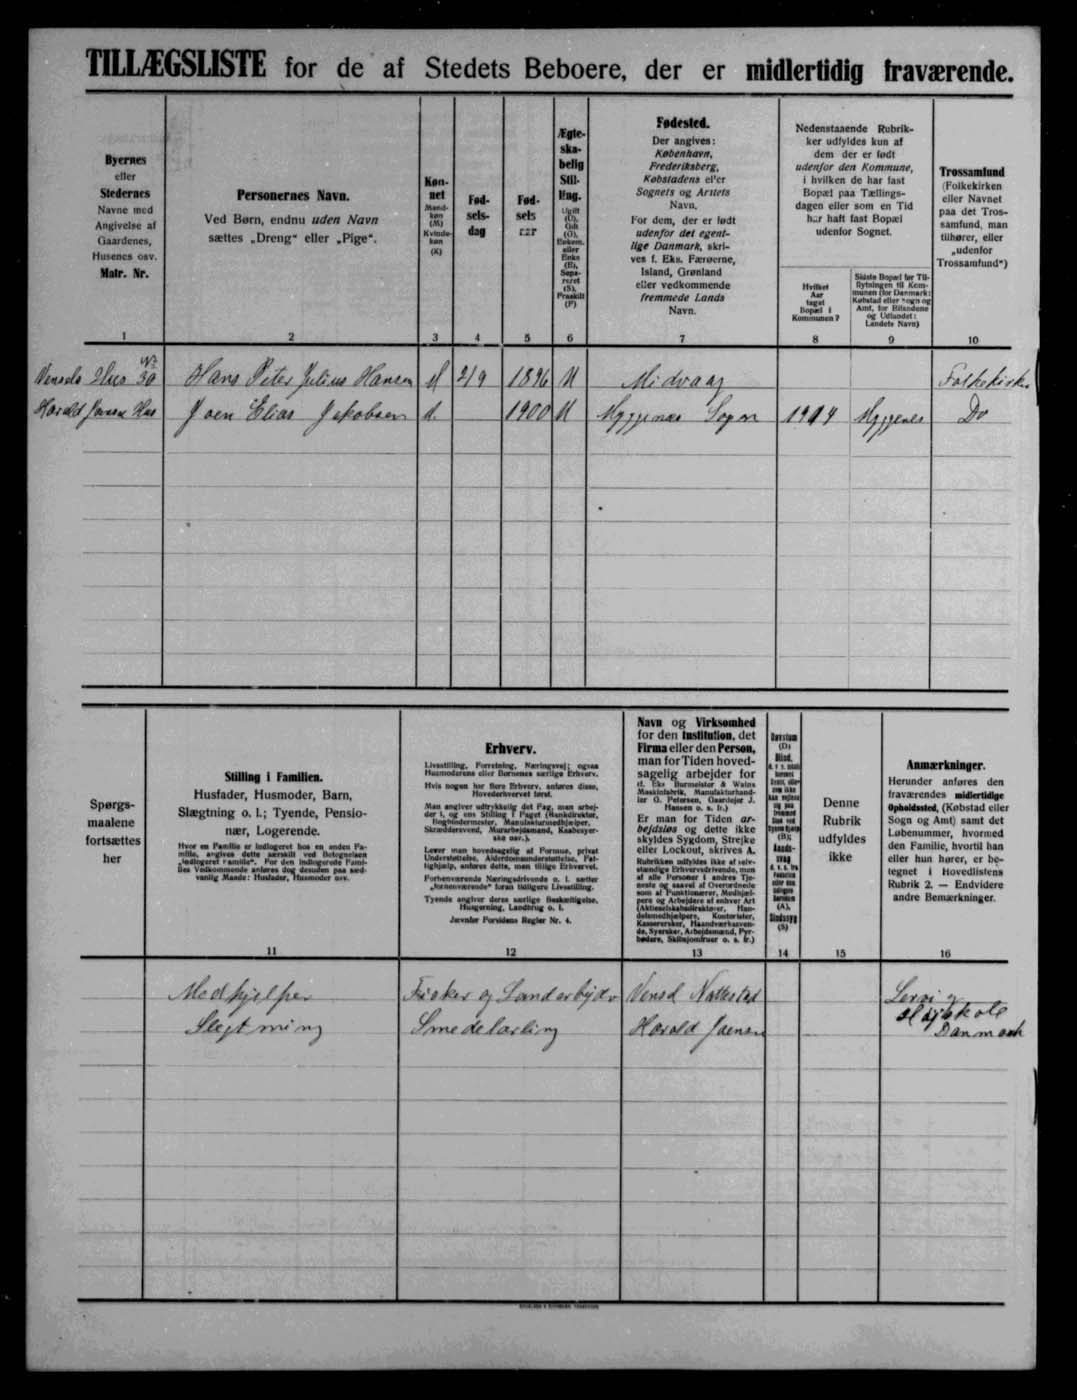 TILLÆGSLISTE for de af Stedets Beboere, der er midlertidig fraværende.
Byernes
eller
Stedernes
Navne med
Angivelse af
Gaardenes,
Husenes osv.
Matr. Nr.
Personernes Navn.
Ved Børn, endnu uden Navn
sættes „Dreng“ eller „Pige“.
Køn-
net
Mand-
køn
(M)
Kvinde-
køn
(K)
Fød-
sels-
dag
Fød-
sels
aar
Ægte-
ska-
belig
Stil-
ling.
Ugift
(U),
Gift
(G),
Enkem.
eller
Enke
(E),
Sepa-
reret
(S),
Fraskilt
(F)
Fødested.
Der angives:
København,
Frederiksberg,
Købstadens eller
Sognets og Amtets
Navn.
For dem, der er født
udenfor det egent-
lige Danmark, skri-
ves f. Eks. Færøerne,
Island, Grønland
eller vedkommende
fremmede Lands
Navn.
Nedenstaaende Rubrik-
ker udfyldes kun af
dem der er født
udenfor den Kommune,
i hvilken de har fast
Bopæl paa Tællings-
dagen eller som en Tid
har haft fast Bopæl
udenfor Sognet.
Hvilket
Aar
taget
Bopæl i
Kommunen?
Sidste Bopæl før Til-
flytningen til Kom-
munen (for Danmark:
Købstad eller Sogn og
Amt, for Bilandene
og Udlandet:
Landets Navn)
Trossamfund
(Folkekirken
eller Navnet
paa det Tros-
samfund, man
tilhører, eller
„udenfor
Trossamfund“)
1 2 3 4 5 6 7 8 9 10
Hus Nr. 30 Hans Peter Julius Hansen M 2/9 1896 U Midvaag Folkekirke
Harald Jensen Hus Joen Elias Jakobsen M. 1900 U Myggenæs Sogn 1914 Myggenes Do
Spørgs-
maalene
fortsættes
her
Stilling i Familien.
Husfader, Husmoder, Barn,
Slægtning o. l.; Tyende, Pensio-
nær, Logerende.
Hvor en Familie er indlogeret hos en anden Fa-
milie, angives dette særskilt ved Betegnelsen
„Indlogeret Familie“. For den indlogerede Fami-
lies Vedkommende anføres dog desuden paa sæd-
vanlig Maade: Husfader, Husmoder osv.
Erhverv.
Livsstilling, Forretning, Næringsvej; ogsaa
Husmoderens eller Børnenes særlige Erhverv.
Hvis nogen har flere Erhverv, anføres disse,
Hovederhvervet først.
Man angiver udtrykkelig det Fag, man arbej-
der i, og ens Stilling i Faget (Bankdirektør,
Bogbindermester, Manufakturmedhjælper,
Skræddersvend, Murarbejdsmand, Kaabesyer-
ske osv.).
Lever man hovedsagelig af Formue, privat
Understøttelse, Alderdomsunderstøttelse, Fat-
tighjælp, anføres dette, men tillige Erhvervet.
Forhenværende Næringsdrivende o. l. sætter
„forhenværende“ foran tidligere Livsstilling.
Tyende angiver deres særlige Beskæftigelse,
Husgerning, Landbrug o. l.
Jævnfør Forsidens Regler Nr. 4.
Navn og Virksomhed
for den Institution, det
Firma eller den Person,
man for Tiden hoved-
sagelig arbejder for
(f. Eks Burmeister & Wains
Maskinfabrik, Manufakturhand-
ler G. Petersen, Gaardejer J.
Hansen o. s. fr.)
Er man for Tiden ar-
bejdsløs og dette ikke
skyldes Sygdom, Strejke
eller Lockout, skrives A.
Rubrikken udfyldes ikke af selv-
stændige Erhvervsdrivende, men
af alle Personer i andres Tje-
neste og saavel af Overordnede
som af Funktionærer, Medhjæl-
pere og Arbejdere af enhver Art
(Aktieselskabsdirektører, Han-
delsmedhjælpere, Kontorister,
Kasserersker, Haandværkssven-
de, Syersker, Arbejdsmænd, Fyr-
bødere, Skibsjomfruer o. s. fr.)
Denne
Rubrik
udfyldes
ikke
Anmærkninger.
Herunder anføres den
fraværendes midlertidige
Opholdssted, (Købstad eller
Sogn og Amt) samt det
Løbenummer, hvormed
den Familie, hvortil han
eller hun hører, er be-
tegnet i Hovedlistens
Rubrik 2. — Endvidere
andre Bemærkninger.
11 12 13 14 15 16
Medhjelper Fisker og Landarbejder
Slegtning Smedelærling Harald Joensen
Højskole
Danmark